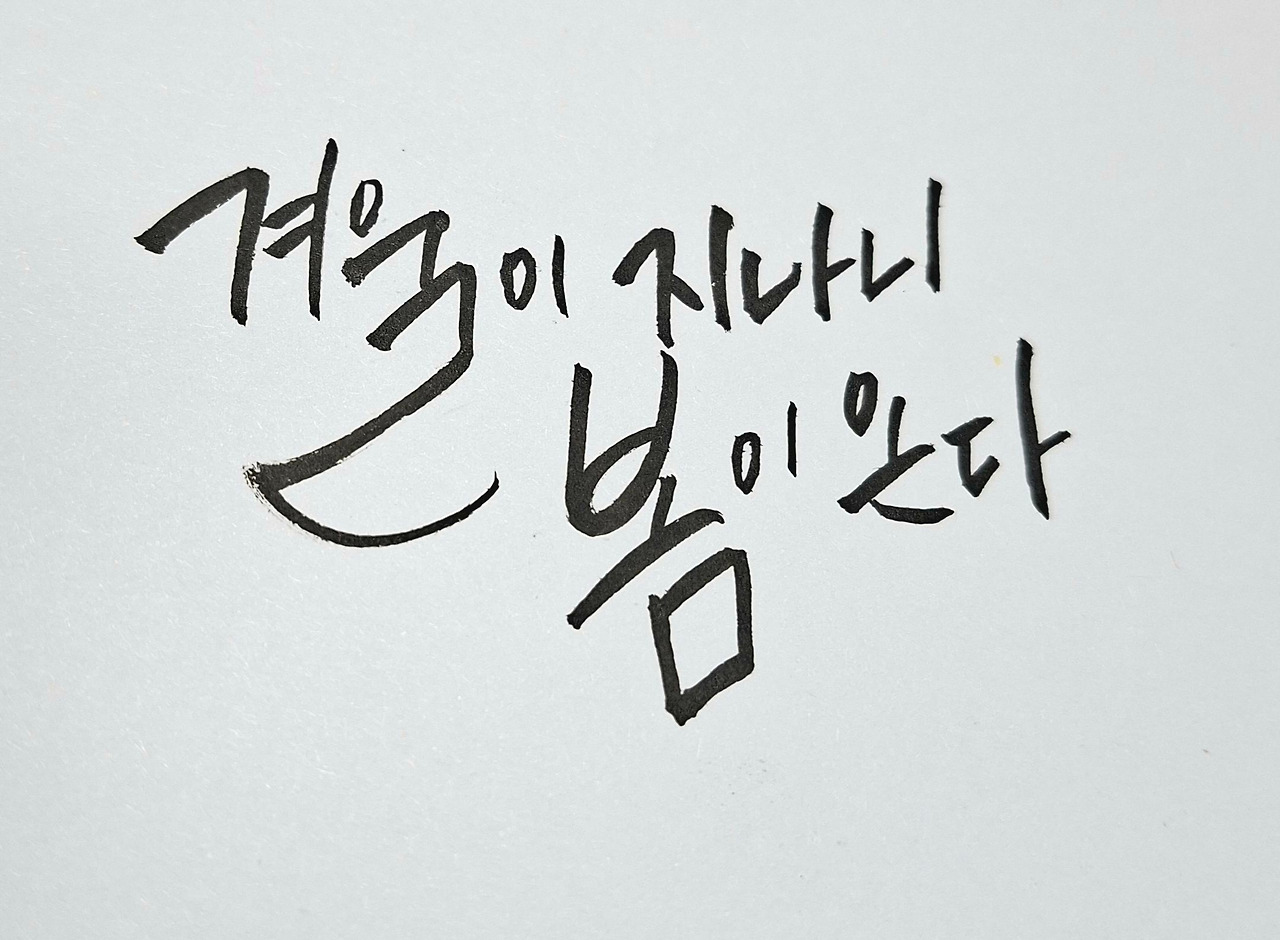 겨울이 지나니
봄이 온다